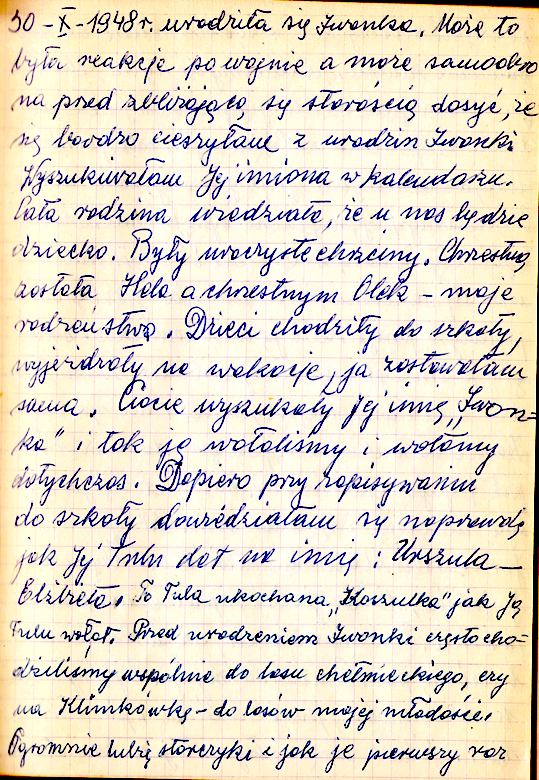 30-X-1948r. urodziła się Iwonka. Może to
była reakcja po wojnie a może samoobro
na przed zbliżającą się starością dosyć, że
się bardzo cieszyłam z urodzin Iwonki.
Wyszukiwałam Jej imiona w kalendarzu.
Cała rodzina wiedziała, że u nas będzie
dziecko. Były uroczyste chrzciny. Chrzestną
została Hela a chrzestnym Olek – moje
rodzeństwo. Dzieci chodziły do szkoły,
wyjeżdżały na wakacje, ja zostawałam
sama. Ciocie wyszukały Jej imię „Iwon=
ka" i tak ją wołaliśmy i wołamy
dotychczas. Dopiero przy zapisywaniu
do szkoły dowiedziałam się naprawdę
jak Jej Tulu dał na imię: Urszula –
Elżbieta. To Tula ukochana „Koszulka" jak Ją
Tulu wołał. Przed urodzeniem Iwonki często cho=
dziliśmy wspólnie do lasu chełmieckiego, czy
na Klimkówkę – do lasów mojej młodości.
Ogromnie lubię storczyki i jak je pierwszy raz